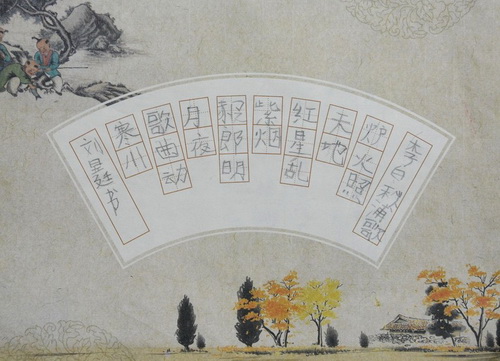 李白秋浦歌
炉火照
天地
红星乱
紫烟
赧郎明
月夜
歌曲动
寒州
刘昱廷书